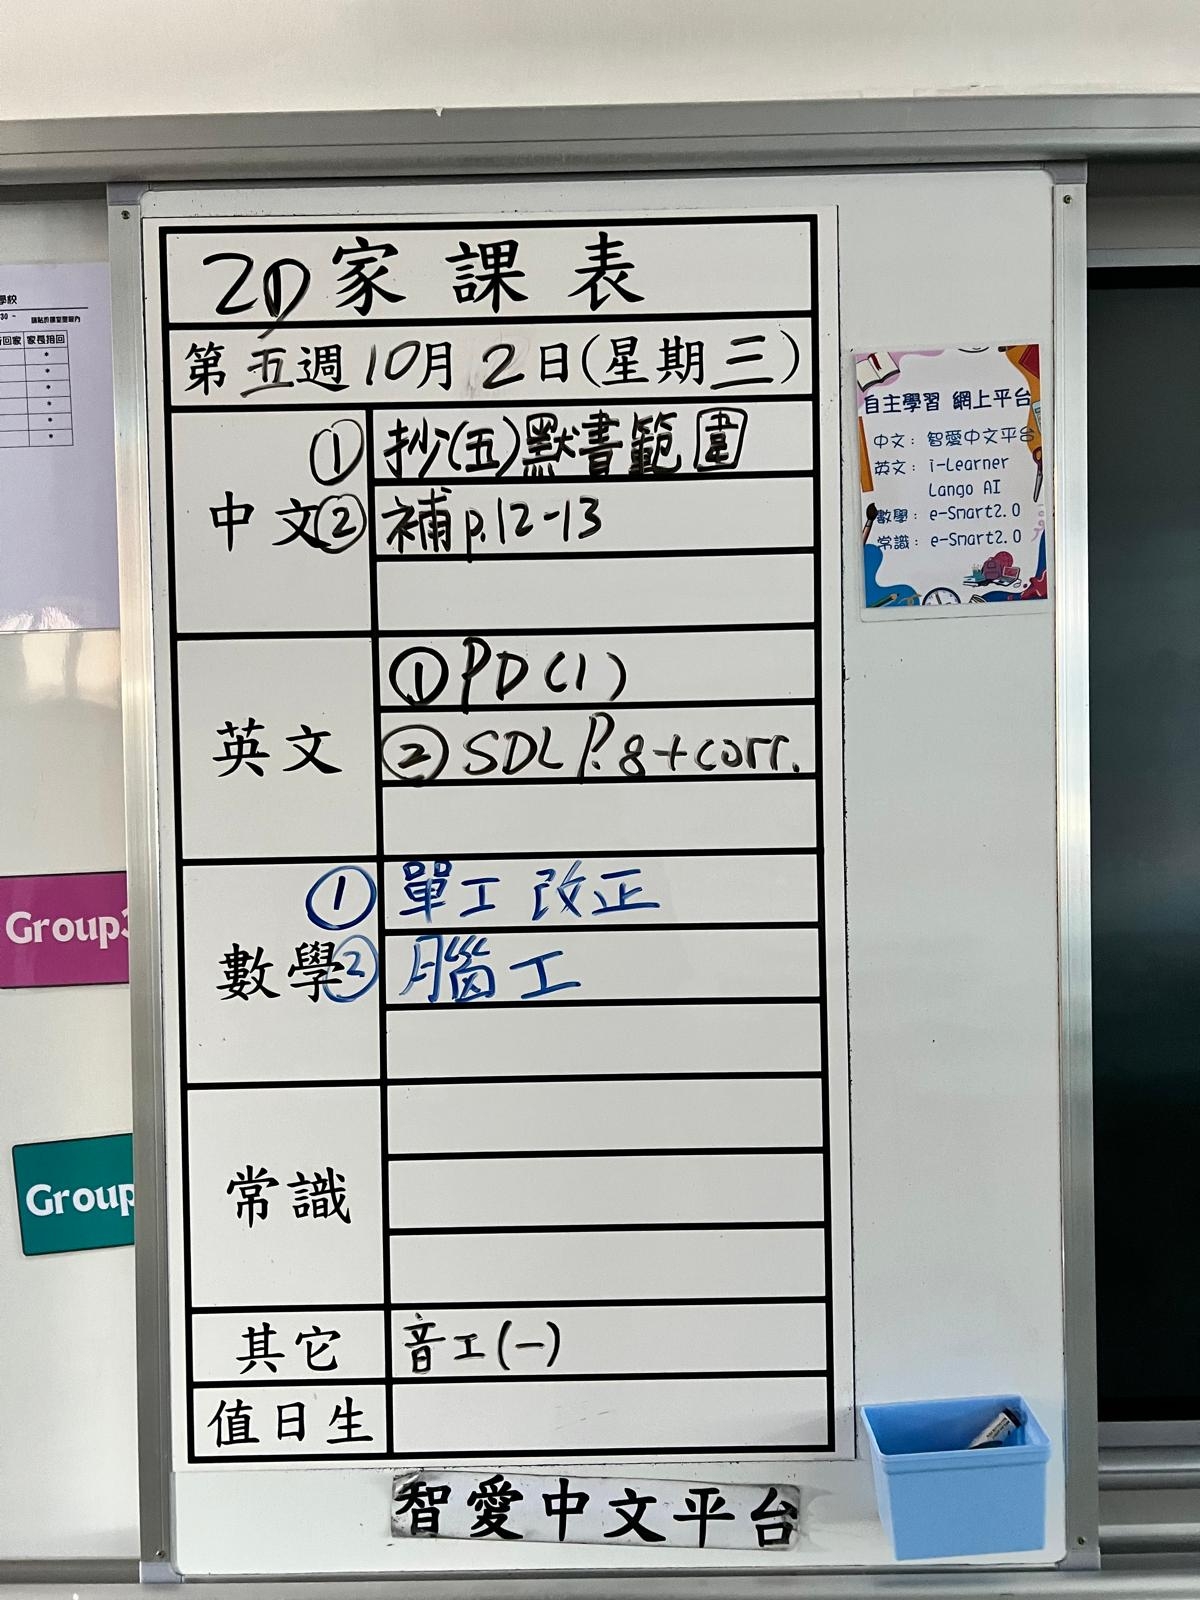 2D 家課表
第五週10月2日(星期三)
中文
① 抄(五)默書範圍
② 補p.12-13
英文
① PD(1)
② SDL P.8+corr.
數學
① 單工 改正
② 腦工
常識
其它
音工(一)
值日生
智愛中文平台
自主學習 網上平台
中文：智愛中文平台
英文：i-Learner
Lango AI
數學：e-Smart2.0
常識：e-Smart2.0
學校
30 -
回家 家長接回
Group3
Group